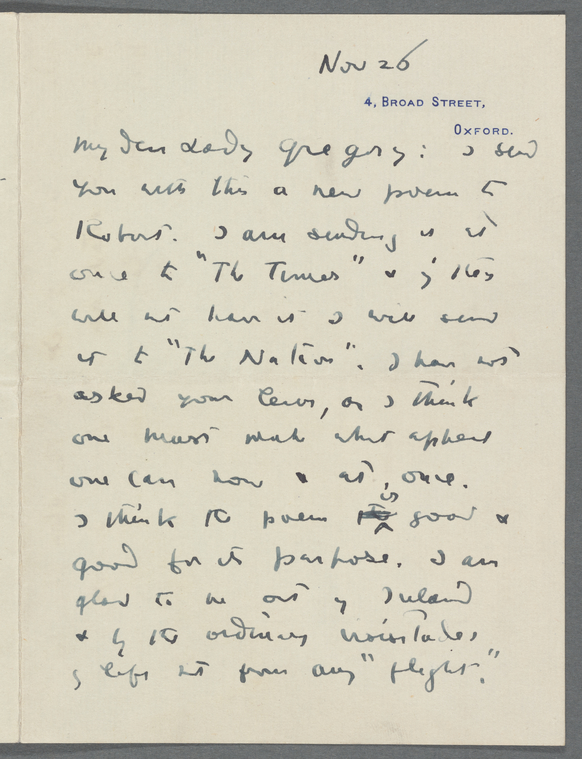 Nov 26
4, BROAD STREET,
OXFORD.
My dear Lady Gregory: I send
you with this a new poem to
Robert. I am sending it at
once to "The Times" & if they
will not have it I will send
it to "The Nation". I have not
asked your leave, as I think
one must make what appeal
one can now & at once.
I think the poem is good &
good for its purpose. I am
glad to be out of Ireland
& by the ordinary vicissitudes
of life not from any "flight."